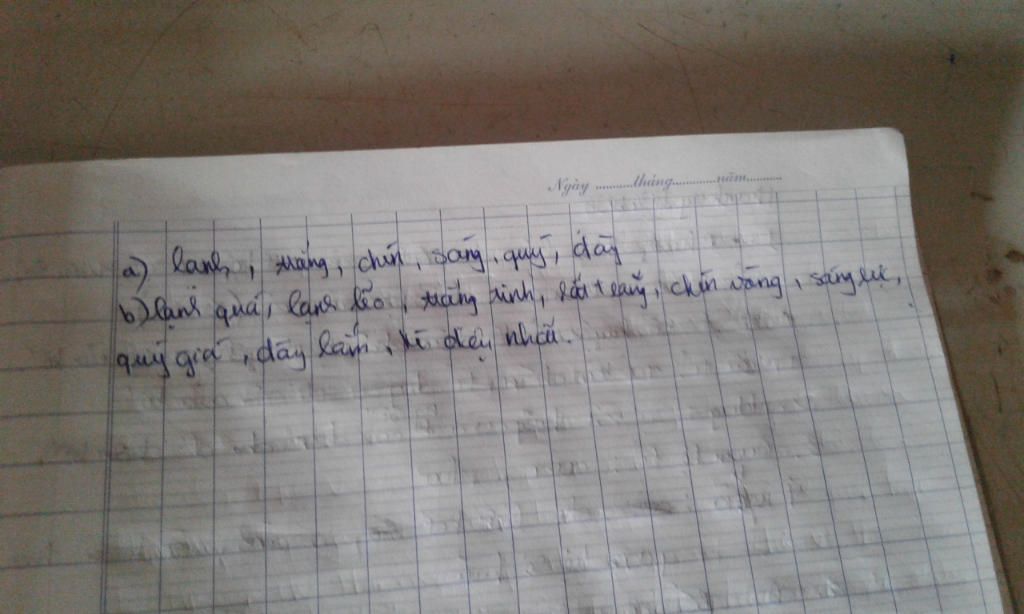 Ngày ..........tháng............năm..........
a) lạnh, trắng, chín, sáng, quý, dày
b) lạnh quá, lạnh lẽo, trắng tinh, rất trắng, chín vàng, sáng rực,
quý giá, dày lắm, đẹp nhất.